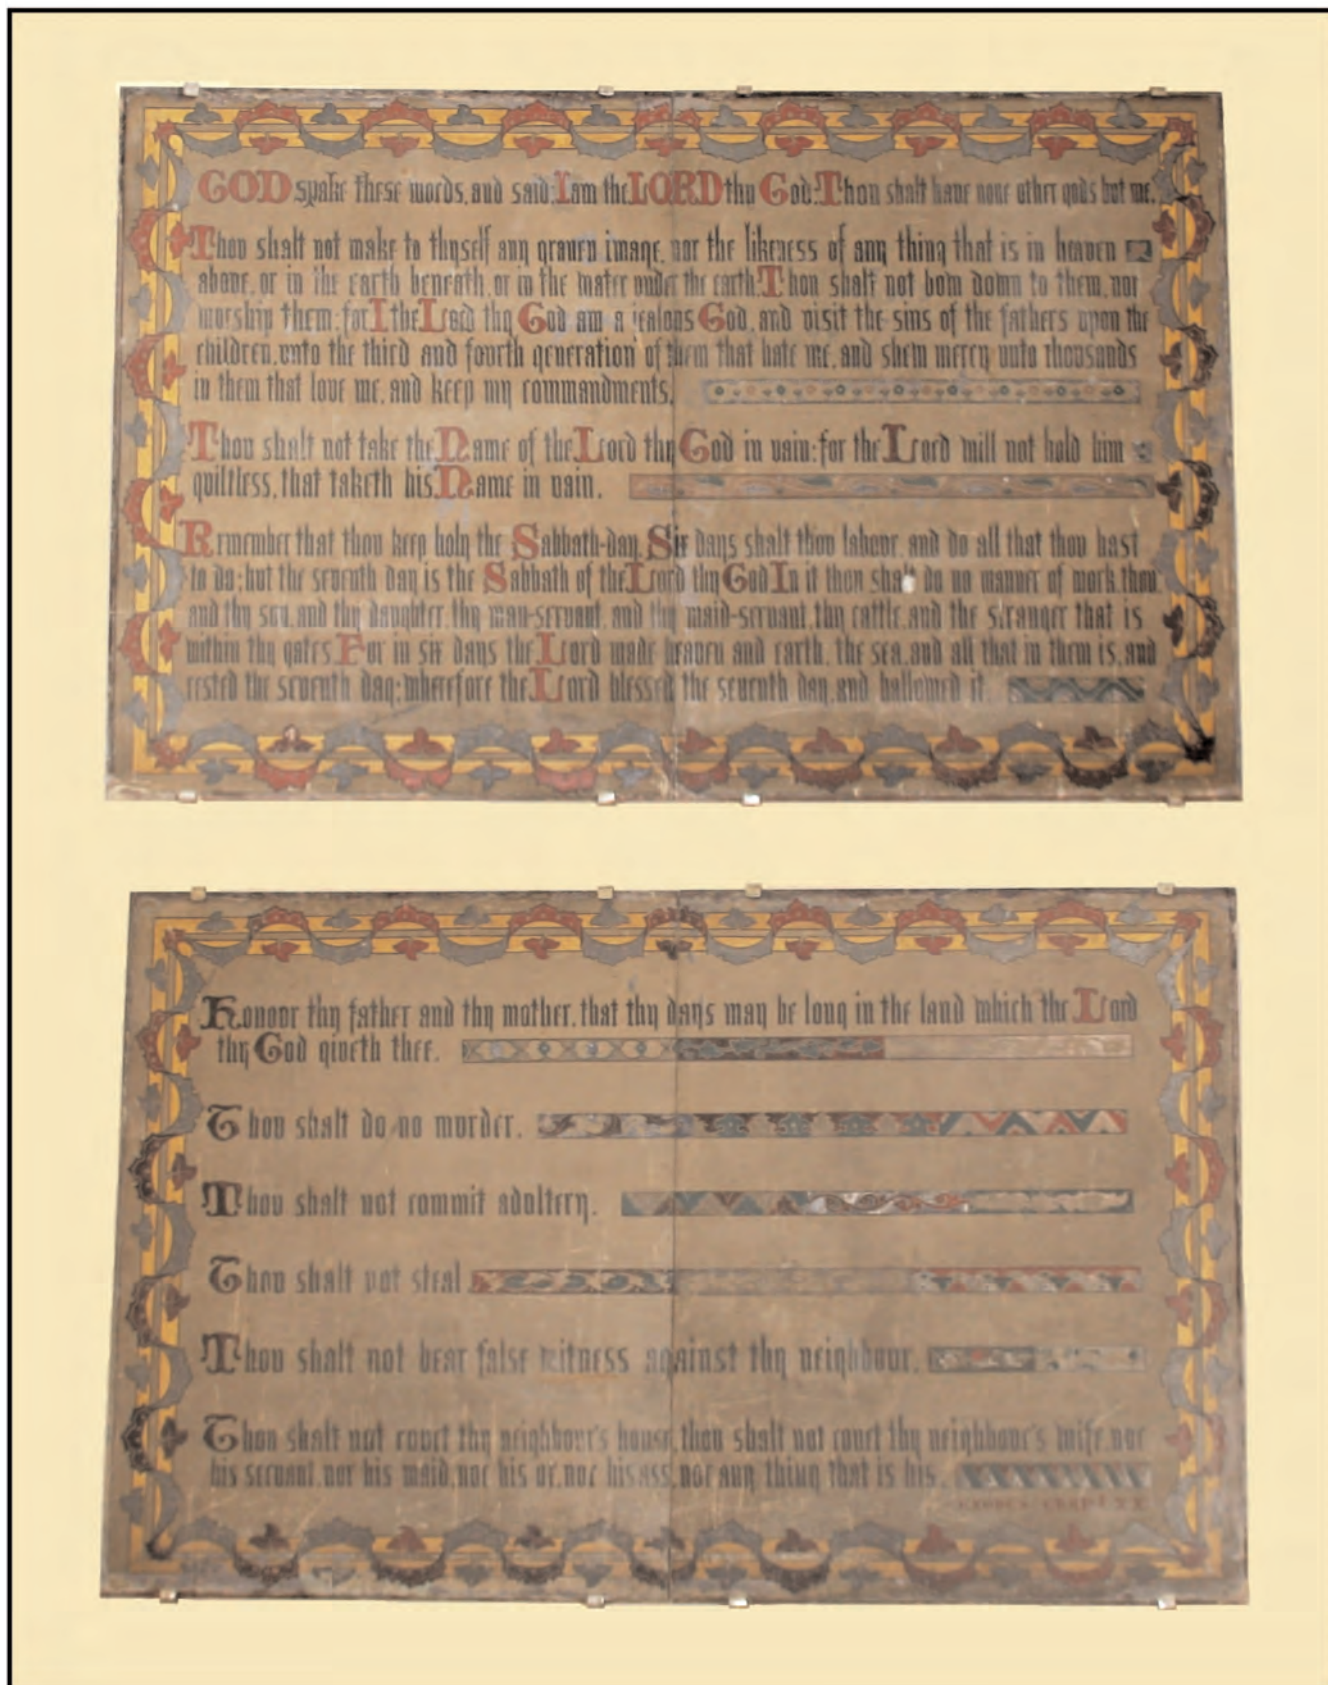 GOD spake these words, and said: I am the LORD thy God: Thou shalt have none other gods but me.
Thou shalt not make to thyself any graven image, nor the likeness of any thing that is in heaven
above, or in the earth beneath, or in the water under the earth. Thou shalt not bow down to them, nor
worship them: for I the Lord thy God am a jealous God, and visit the sins of the fathers upon the
children, unto the third and fourth generation of them that hate me, and shew mercy unto thousands
in them that love me, and keep my commandments.
Thou shalt not take the Name of the Lord thy God in vain: for the Lord will not hold him
guiltless, that taketh his Name in vain.
Remember that thou keep holy the Sabbath-day. Six days shalt thou labour, and do all that thou hast
to do; but the seventh day is the Sabbath of the Lord thy God In it thou shalt do no manner of work, thou,
and thy son, and thy daughter, thy man-servant, and thy maid-servant, thy cattle, and the stranger that is
within thy gates For in six days the Lord made heaven and earth, the sea, and all that in them is, and
rested the seventh day; wherefore the Lord blessed the seventh day, and hallowed it.
Honour thy father and thy mother, that thy days may be long in the land which the Lord
thy God giveth thee.
Thou shalt do no murder.
Thou shalt not commit adultery.
Thou shalt not steal
Thou shalt not bear false witness against thy neighbour.
Thou shalt not covet thy neighbour's house, thou shalt not covet thy neighbour's wife, nor
his servant, nor his maid, nor his ox, nor his ass, nor any thing that is his.
EXODUS CHAP XX